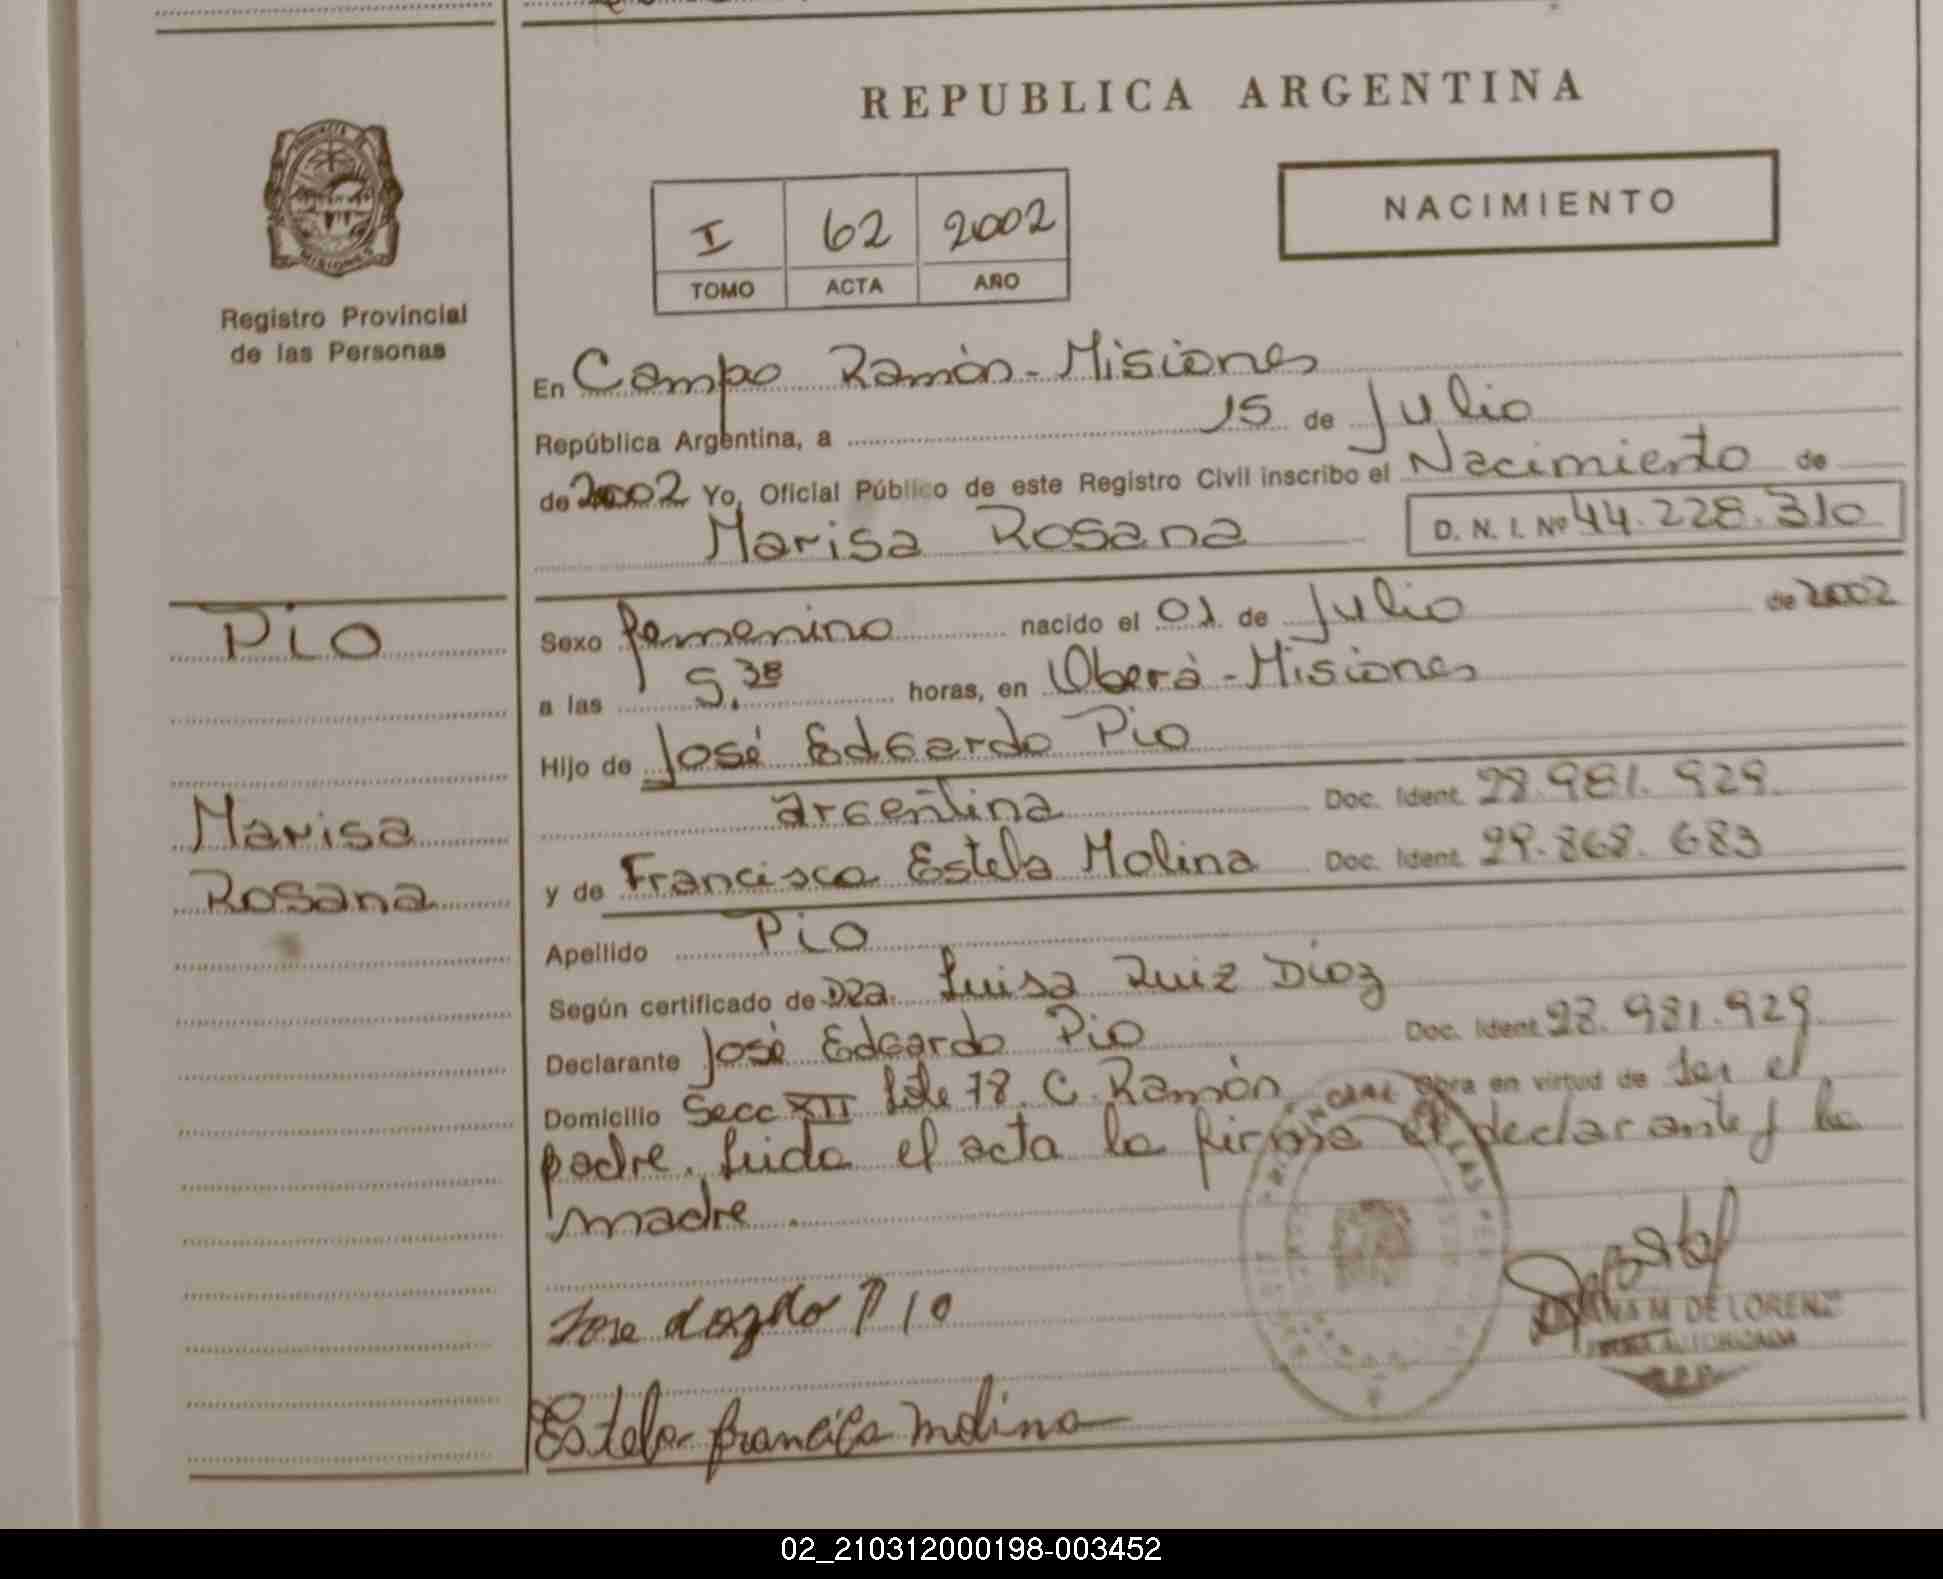 REPUBLICA ARGENTINA
NACIMIENTO
I 62 2002
TOMO ACTA AÑO
MISIONES
Registro Provincial
de las Personas
En Campo Ramón - Misiones
República Argentina, a 15 de Julio
de 2002 Yo, Oficial Público de este Registro Civil inscribo el Nacimiento de
Marisa Rosana D. N. I. Nº 44.228.310
Pio
Marisa
Rosana
Sexo femenino nacido el 01 de Julio de 2002
a las 5.38 horas, en Oberá - Misiones
Hijo de José Edgardo Pio
argentina Doc. Ident. 28.981.929.
y de Francisca Estela Molina Doc. Ident. 29.868.683
Apellido Pio
Según certificado de Dra. Luisa Ruiz Díaz
Declarante José Edgardo Pio Doc. Ident. 28.981.929.
Domicilio Secc XII Lote 78. C. Ramón Obra en virtud de ser el
padre. Leida el acta la firma el declarante y la
madre.
Jose dogdo PIO
Estela francisca molina
M DE LORENZ
AUTORIZADA
02_210312000198-003452